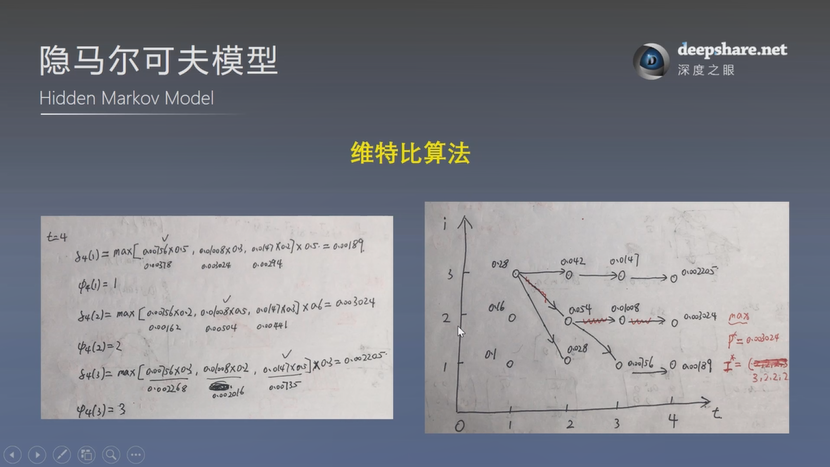 隐马尔可夫模型
Hidden Markov Model
deepshare.net
深度之眼
维特比算法
t=4
δ4(1) = max[0.00756×0.5, 0.01008×0.3, 0.0147×0.2]×0.5 = 0.00189
0.00378 0.003024 0.00294
φ4(1) = 1
δ4(2) = max[0.00756×0.2, 0.01008×0.5, 0.0147×0.3]×0.6 = 0.003024
0.00162 0.00504 0.00441
φ4(2) = 2
δ4(3) = max[0.00756×0.3, 0.01008×0.2, 0.0147×0.5]×0.3 = 0.002205
0.002268 0.002016 0.00735
φ4(3) = 3
i
0.28 0.042 0.0147
3 0.002205
0.16 0.054 0.01008
2 0.003024 max
P* = 0.003024
0.1 0.028 0.00756
1 0.00189 I* = (
3,2,2,2
0 1 2 3 4 t